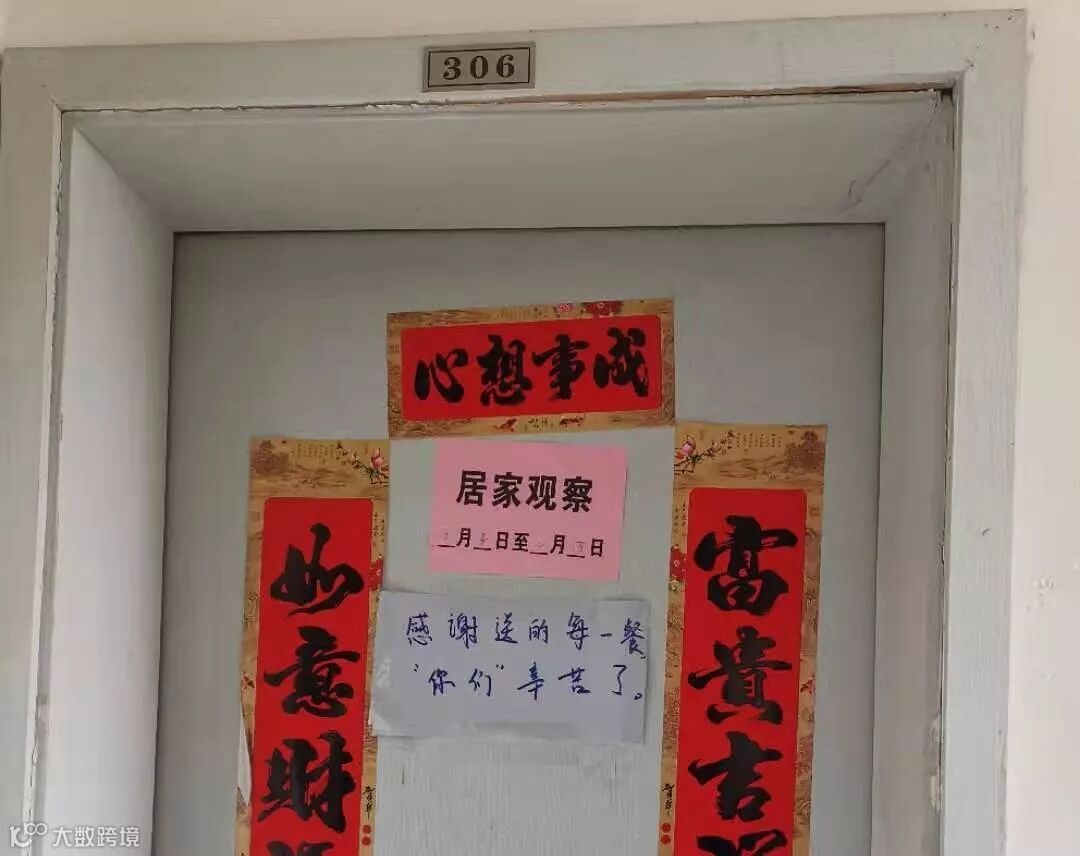 306
心想事成
居家观察
月 日至 月 日
感谢送的每一餐
"你们"辛苦了。
如意财
富贵吉
大数跨境